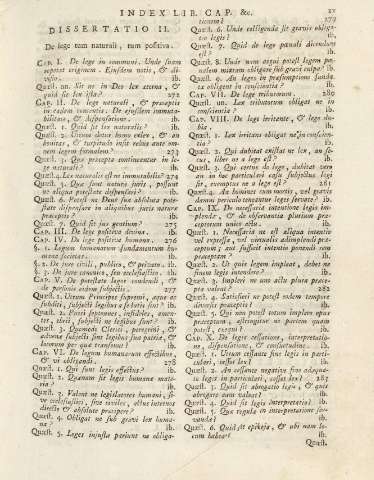 INDEX LIB. CAP. &c. xv
DISSERTATIO II.
De lege tam naturali, tum positiva.
CAP. I. De lege in communi. Unde suam
sortitur originem. Ejusdem notio, & di-
visio. ib.
Quæst. un. Sit ne in Deo lex æterna, &
quid sit lex ista? 272
CAP. II. De lege naturali, & præceptis
in eadem contentis. De ejusdem immuta-
bilitate, & dispensatione. ib.
Quæst. 1. Quid sit lex naturalis? ib.
Quæst. 2. Utrum detur bonum, &
nem legem formalem? 273
Quæst. 3. Quæ præcepta continentur in le-
ge naturali? ib.
Quæst. 4. Lex naturalis est ne immutabilis? 274
Quæst. 5. Quæ sunt naturæ juris, possunt
ne aliqua potestate dispensari? ib.
Quæst. 6. Potest ne Deus sua absoluta pote-
state dispensare in aliquibus juris naturæ
præceptis? ib.
Quæst. 7. Quid sit jus gentium? 275
CAP. III. De lege positiva divina. ib.
CAP. IV. De lege positiva humana. 276
§. 1. Legum humanarum
mana scientia. ib.
§. 2. De jure civili, publico, & privato. ib.
§. 3. De jure canonico, seu ecclesiastico. ib.
CAP. V. De potestate legem condendi, &
de personis eidem subjectis. 277
Quæst. 1. Utrum Principes supremi, aque ac
subditi, subjecti legibus a se latis sint? ib.
Quæst. 2. Pueri septennes, infideles, amen-
tes, ebrii, subjecti ne legibus sint? ib.
Quæst. 3. Quomodo Clerici, peregrini, &
advenæ subjecti sint legibus sua patriæ, &
locorum per quæ transeunt? ib.
CAP. VI. De legum humanarum effectibus,
& vi obligandi. 278
Quæst. 1. Qui sunt legis effectus? ib.
Quæst. 2. Quænam sit legis humanæ mate-
ria? ib.
Quæst. 3. Valent ne legislatores humani, si-
ve ecclesiastici, sive civiles, actus internos
directe & absolute præcipere? ib.
Quæst. 4. Obligat ne sub gravi lex huma-
na? ib.
Quæst. 5. Leges injustæ pariunt ne obliga-
tionem? 279
Quæst. 6. Unde colligenda sit gravis obliga-
tio legis? ib.
Quæst. 7. Quid de lege pœnali dicendum
est? ib.
Quæst. 8. Unde nam nequit potest legem po-
nalem materiam obligare sub gravi culpa? ib.
Quæst. 9. An leges in præsumptione funda-
tæ obligent in conscientia? ib.
CAP. VII. De lege tributorum. 280
Quæst. un. Lex tributorum obligat ne in
conscientia? ib.
CAP. VIII. De lege irritante, & lege du-
bia. ib.
Quæst. 1. Lex irritans obligat ne in conscien-
tia? ib.
Quæst. 2. Qui dubitat existat ne lex, an se-
cus, liber ne a lege est? ib.
Quæst. 3. Qui certus de lege, dubitat tum
an in particulari casu subjectus legi
sit, exemptus ne a lege est? 281
Quæst. 4. An homines cum mortis, vel gravis
damni periculo tenentur leges servare? ib.
CAP. IX. De necessaria intentione legis im-
plendæ, & de observantia plurium præ-
ceptorum unico actu. ib.
Quæst. 1. Necessaria ne est aliqua intentio
vel expressa, vel virtualis adimplendi præ-
ceptum; aut sufficit intentio ponendi rem
præceptam? ib.
Quæst. 2. Qui legem implent, debet ne
finem legis intendere? ib.
Quæst. 3. Impleri ne uno actu plura præce-
pta valent? 282
Quæst. 4. Satisfieri ne potest eodem tempore
diversis præceptis? ib.
Quæst. 5. Qui non potest totum implere opus
præceptum, astringitur ne partem quam
potest, exequi? ib.
CAP. X. De lege cessatione, interpretatio-
ne, dispensatione, & consuetudine. ib.
Quæst. 1. Utrum cessante fine legis in parti-
culari, cesset lex? ib.
Quæst. 2. An cessante negative fine adæqua-
te legis in particulari, cesset lex? 283
Quæst. 3. Quid sit abrogatio legis, & quis
abrogare eam valeat? ib.
Quæst. 4. Quid sit legis interpretatio? ib.
Quæst. 5. Quæ regula in interpretatione ser-
vanda? ib.
Quæst. 6. Quid sit epikeja, & ubi nam lo-
cum habeat? ib.
Quæst.